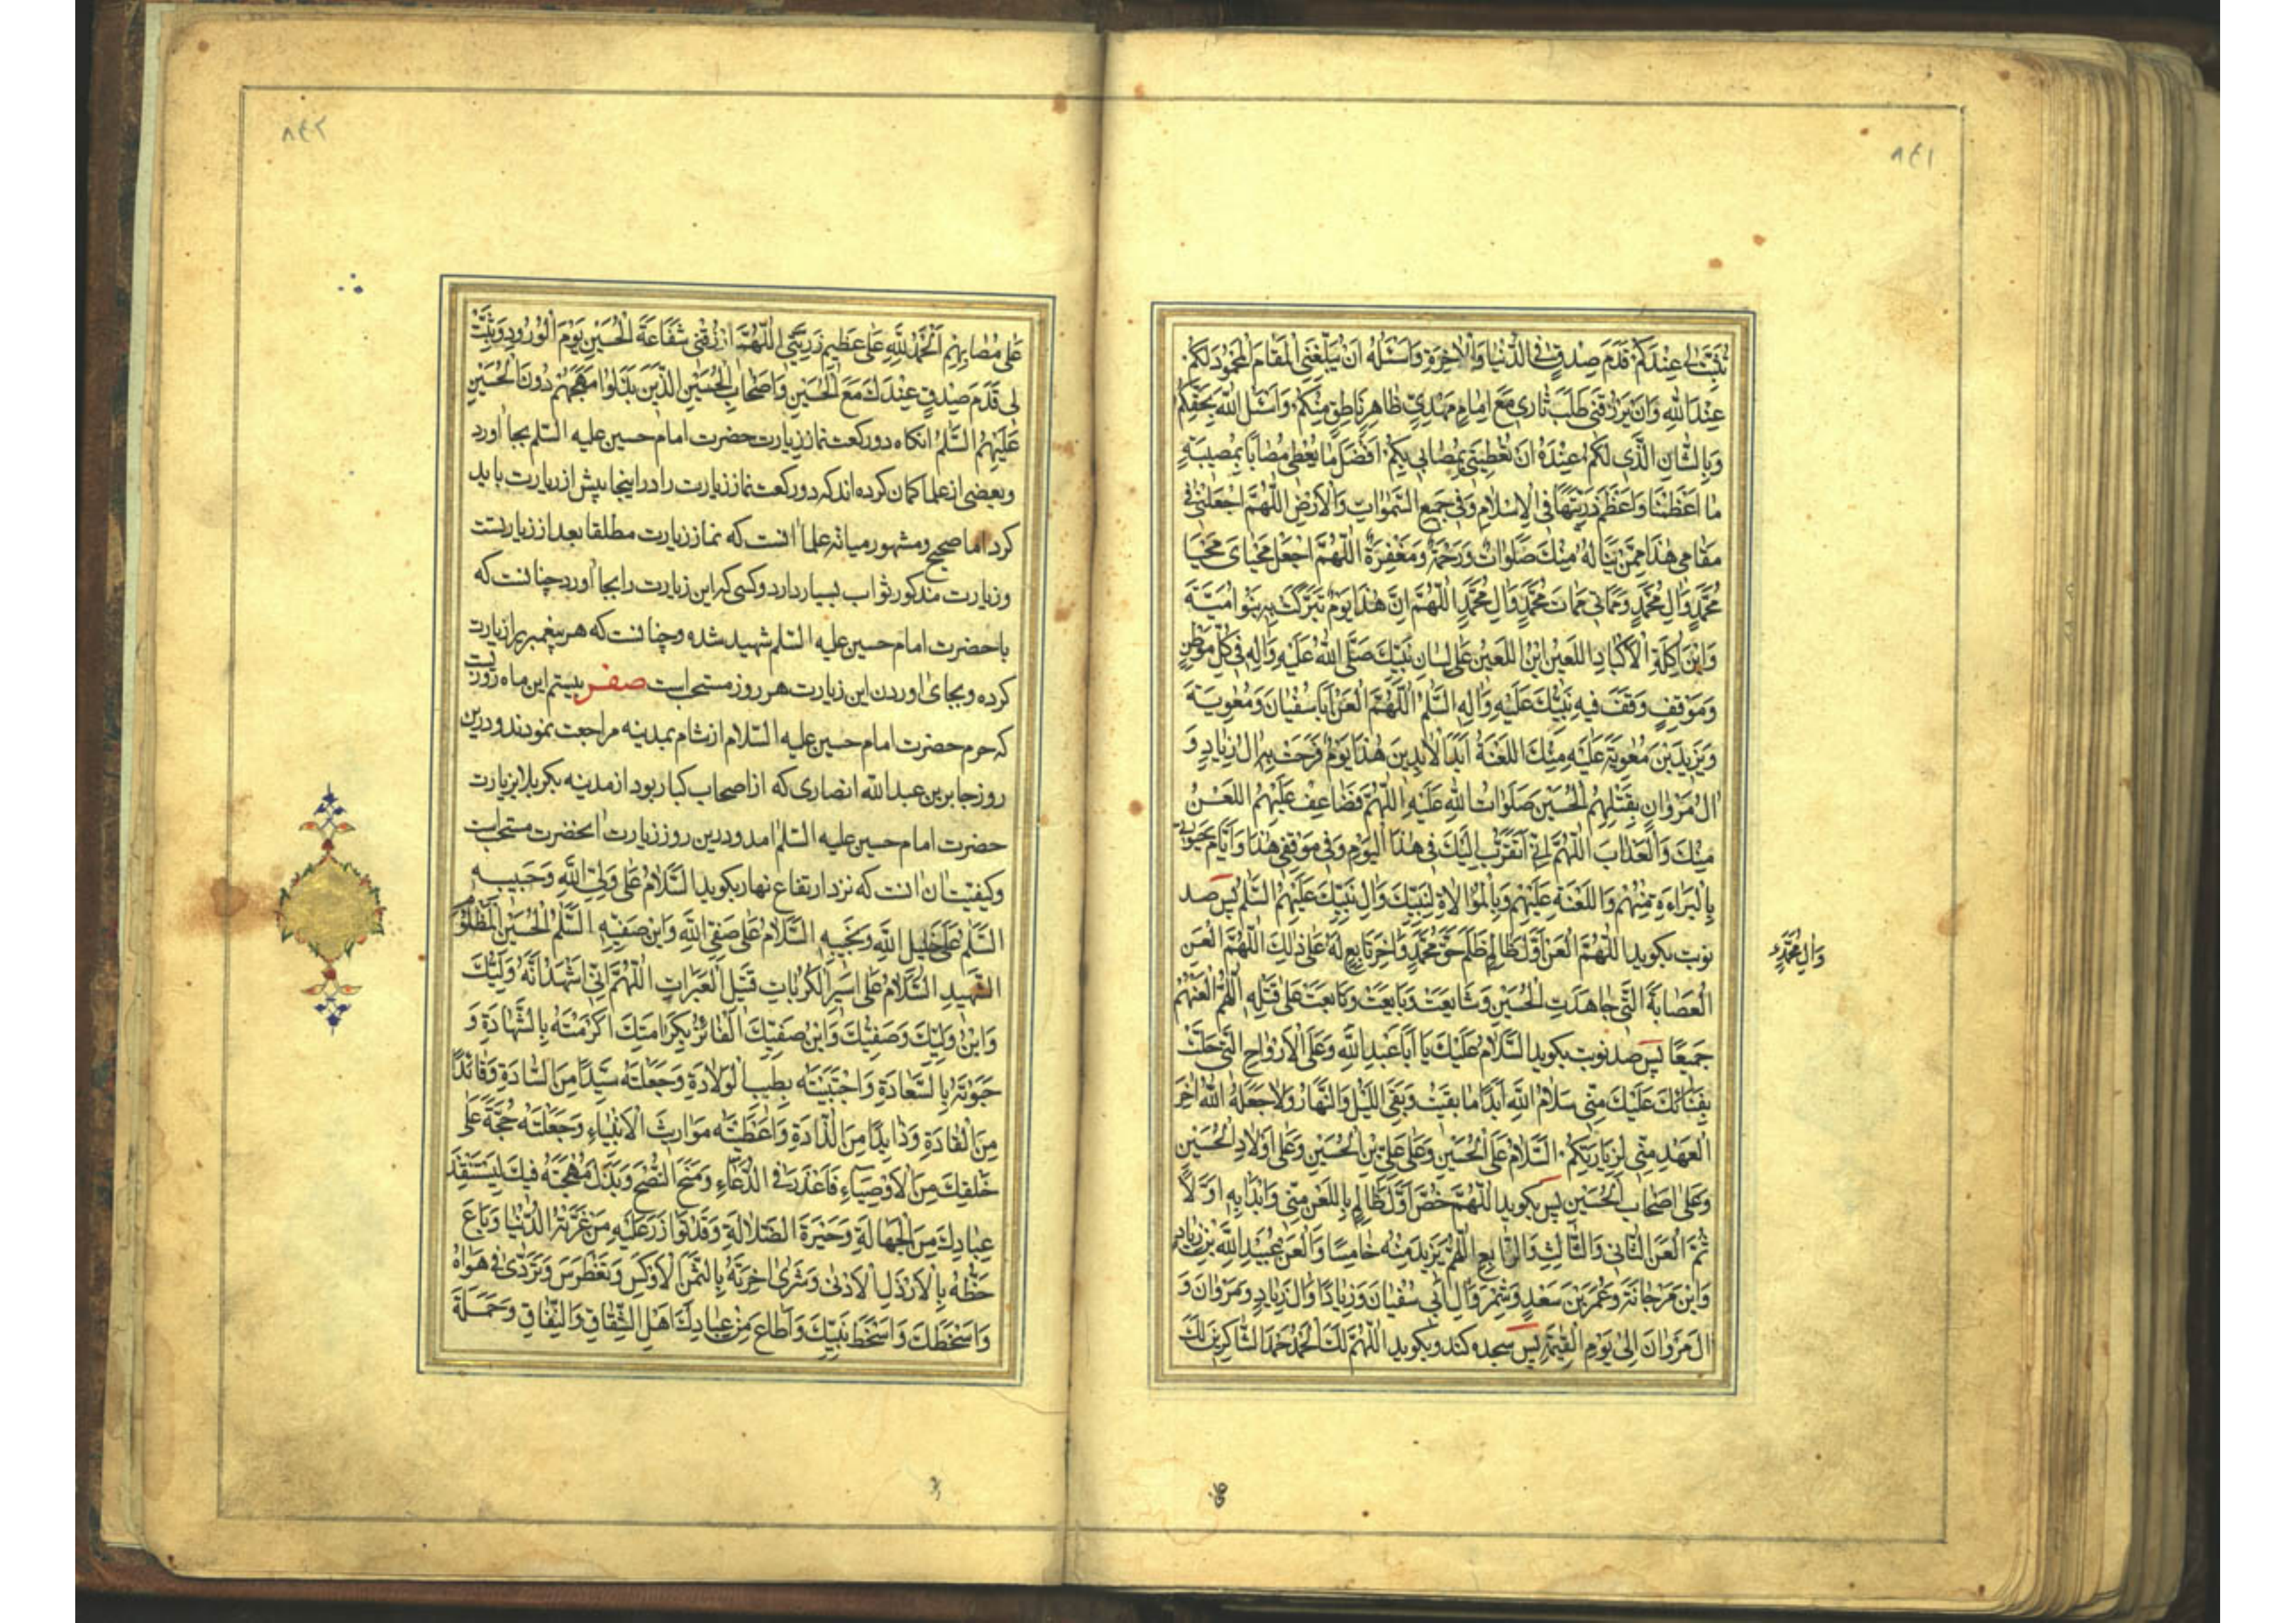 ٨٤١
ثَبِّتَ لی عِنْدَکُمْ قَدَمَ صِدْقٍ فِی الدُّنْیَا وَالْاٰخِرَةِ وَاَسْئَلُهُ اَنْ یُبَلِّغَنِی الْمَقَامَ الْمَحْمُودَ لَکُمْ
عِنْدَ اللّٰهِ وَاَنْ یَرْزُقَنِی طَلَبَ ثَاری مَعَ اِمَامٍ مَهْدِیٍّ ظَاهِرٍ نَاطِقٍ مِنْکُمْ وَاَسْئَلُ اللّٰهَ بِحَقِّکُمْ
وَبِالشَّانِ الَّذی لَکُمْ عِنْدَهُ اَنْ یُعْطِیَنی بِمُصَابی بِکُمْ اَفْضَلَ مَا یُعْطی مُصَابًا بِمُصیبَتِهٖ
مَا اَعْظَمَنَا وَاَعْظَمَ رَزِیَّتَهَا فِی الْاِسْلَامِ وَفی جَمیعِ السَّمٰوَاتِ وَالْاَرْضِ اَللّٰهُمَّ اجْعَلْنی فی
مَقَامی هٰذَا مِمَّنْ یَنَالُهُ مِنْکَ صَلَوَاتٌ وَرَحْمَةٌ وَمَغْفِرَةٌ اَللّٰهُمَّ اجْعَلْ مَحْیَایَ مَحْیَا
مُحَمَّدٍ وَاٰلِ مُحَمَّدٍ وَمَمَاتی مَمَاتَ مُحَمَّدٍ وَاٰلِ مُحَمَّدٍ اَللّٰهُمَّ اِنَّ هٰذَا یَوْمٌ تَبَرَّکَتْ بِهٖ بَنُوا اُمَیَّةَ
وَابْنُ اٰکِلَةِ الْاَکْبَادِ اللَّعینُ ابْنُ اللَّعینِ عَلٰی لِسَانِ نَبِیِّکَ صَلَّی اللّٰهُ عَلَیْهِ وَاٰلِهٖ فی کُلِّ مَوْطِنٍ
وَمَوْقِفٍ وَقَفَ فیهِ نَبِیُّکَ عَلَیْهِ وَاٰلِهِ السَّلٰمُ اَللّٰهُمَّ الْعَنْ اَبَا سُفْیَانَ وَمُعٰوِیَةَ
وَیَزیدَ بْنَ مُعٰوِیَةَ عَلَیْهِ مِنْکَ اللَّعْنَةُ اَبَدَ الْاٰبِدینَ هٰذَا یَوْمٌ فَرِحَتْ بِهٖ اٰلُ زِیَادٍ وَ
اٰلُ مَرْوَانٍ بِقَتْلِهِمُ الْحُسَیْنَ صَلَوَاتُ اللّٰهِ عَلَیْهِ اَللّٰهُمَّ فَضَاعِفْ عَلَیْهِمُ اللَّعْنَ
مِنْکَ وَالْعَذَابَ اَللّٰهُمَّ اِنّی اَتَقَرَّبُ اِلَیْکَ فی هٰذَا الْیَوْمِ وَفی مَوْقِفی هٰذَا وَاَیَّامِ حَیٰوتی
بِالْبَرَاءَةِ مِنْهُمْ وَاللَّعْنَةِ عَلَیْهِمْ وَبِالْمُوَالَاةِ لِنَبِیِّکَ وَاٰلِ نَبِیِّکَ عَلَیْهِمُ السَّلٰمُ پس صد
نوبت بکوید اَللّٰهُمَّ الْعَنْ اَوَّلَ ظَالِمٍ ظَلَمَ حَقَّ مُحَمَّدٍ وَاٰخِرَ تَابِعٍ لَهُ عَلٰی ذٰلِکَ اَللّٰهُمَّ الْعَنِ
وَاٰلِ مُحَمَّدٍ
الْعِصَابَةَ الَّتی جَاهَدَتِ الْحُسَیْنَ وَشَایَعَتْ وَبَایَعَتْ وَتَابَعَتْ عَلٰی قَتْلِهٖ اَللّٰهُمَّ الْعَنْهُمْ
جَمیعًا پس صد نوبت بکوید اَلسَّلَامُ عَلَیْکَ یَا اَبَا عَبْدِ اللّٰهِ وَعَلَی الْاَرْوَاحِ الَّتی حَلَّتْ
بِفِنَائِکَ عَلَیْکَ مِنّی سَلَامُ اللّٰهِ اَبَدًا مَا بَقیتُ وَبَقِیَ اللَّیْلُ وَالنَّهَارُ وَلَا جَعَلَهُ اللّٰهُ اٰخِرَ
الْعَهْدِ مِنّی لِزِیَارَتِکُمْ اَلسَّلَامُ عَلَی الْحُسَیْنِ وَعَلٰی عَلِیِّ بْنِ الْحُسَیْنِ وَعَلٰی اَوْلَادِ الْحُسَیْنِ
وَعَلٰی اَصْحَابِ الْحُسَیْنِ پس بکوید اَللّٰهُمَّ خُصَّ اَوَّلَ ظَالِمٍ بِاللَّعْنِ مِنّی وَابْدَأْ بِهٖ اَوَّلًا
ثُمَّ الْعَنِ الثَّانی وَالثَّالِثَ وَالرَّابِعَ اَللّٰهُمَّ یَزیدَ مِنْهُ خَامِسًا وَالْعَنْ عُبَیْدَ اللّٰهِ بْنَ زِیَادٍ
وَابْنَ مَرْجَانَةَ وَعُمَرَ بْنَ سَعْدٍ وَشِمْرَ وَاٰلَ اَبی سُفْیَانَ وَزِیَادًا وَاٰلَ زِیَادٍ وَمَرْوَانَ وَ
اٰلَ مَرْوَانَ اِلٰی یَوْمِ الْقِیٰمَةِ پس سجده کند و بکوید اَللّٰهُمَّ لَکَ الْحَمْدُ حَمْدَ الشَّاکِرینَ لَکَ
٨٤٢
عَلٰی مُصَابِهِمْ اَلْحَمْدُ لِلّٰهِ عَلٰی عَظیمِ رَزِیَّتی اَللّٰهُمَّ ارْزُقْنی شَفَاعَةَ الْحُسَیْنِ یَوْمَ الْوُرُودِ وَثَبِّتْ
لی قَدَمَ صِدْقٍ عِنْدَکَ مَعَ الْحُسَیْنِ وَاَصْحَابِ الْحُسَیْنِ الَّذینَ بَذَلُوا مُهَجَهُمْ دُونَ الْحُسَیْنِ
عَلَیْهِمُ السَّلٰمُ انکاه دو رکعت نماز زیارت حضرت امام حسین علیه السلم بجا آورد
و بعضی از علما کمان کرده اند که دو رکعت نماز زیارت را در اینجا پیش از زیارت باید
کرد اما صحیح و مشهور میانه علما آنست که نماز زیارت مطلقا بعد از زیارتست
و زیارت مذکور ثواب بسیار دارد و کسی که این زیارت را بجا آورد چنانست که
با حضرت امام حسین علیه السلم شهید شده و چنانست که هر پیغمبر را زیارت
کرده و بجای اوردن این زیارت هر روز مستحب است صفر بیستم این ماه روزیست
که حرم حضرت امام حسین علیه السلام از شام بمدینه مراجعت نمودند و درین
روز جابر بن عبد الله انصاری که از اصحاب کبار بود از مدینه بکربلا بزیارت
حضرت امام حسین علیه السلم آمد و درین روز زیارت آنحضرت مستحب است
و کیفیت آن آنست که نزد ارتفاع نهار بکوید اَلسَّلَامُ عَلٰی وَلِیِّ اللّٰهِ وَحَبیبِهٖ
اَلسَّلٰمُ عَلٰی خَلیلِ اللّٰهِ وَنَجیبِهٖ اَلسَّلَامُ عَلٰی صَفِیِّ اللّٰهِ وَابْنِ صَفِیِّهٖ اَلسَّلٰمُ الْحُسَیْنِ الْمَظْلُومِ
الشَّهیدِ اَلسَّلَامُ عَلٰی اَسیرِ الْکُرُبَاتِ قَتیلِ الْعَبَرَاتِ اَللّٰهُمَّ اِنّی اَشْهَدُ اَنَّهُ وَلِیُّکَ
وَابْنُ وَلِیِّکَ وَصَفِیُّکَ وَابْنُ صَفِیِّکَ الْفَائِزُ بِکَرَامَتِکَ اَکْرَمْتَهُ بِالشَّهَادَةِ وَ
حَبَوْتَهُ بِالسَّعَادَةِ وَاجْتَبَیْتَهُ بِطیبِ الْوِلَادَةِ وَجَعَلْتَهُ سَیِّدًا مِنَ السَّادَةِ وَقَائِدًا
مِنَ الْقَادَةِ وَذَایِدًا مِنَ الذَّادَةِ وَاَعْطَیْتَهُ مَوَارِیثَ الْاَنْبِیَاءِ وَجَعَلْتَهُ حُجَّةً عَلٰی
خَلْقِکَ مِنَ الْاَوْصِیَاءِ فَاَعْذَرَ فِی الدُّعَاءِ وَمَنَحَ النُّصْحَ وَبَذَلَ مُهْجَتَهُ فیکَ لِیَسْتَنْقِذَ
عِبَادَکَ مِنَ الْجَهَالَةِ وَحَیْرَةِ الضَّلَالَةِ وَقَدْ تَوَازَرَ عَلَیْهِ مَنْ غَرَّتْهُ الدُّنْیَا وَبَاعَ
حَظَّهُ بِالْاَرْذَلِ الْاَدْنٰی وَشَرٰی اٰخِرَتَهُ بِالثَّمَنِ الْاَوْکَسِ وَتَغَطْرَسَ وَتَرَدّٰی فی هَوَاهُ
وَاَسْخَطَکَ وَاَسْخَطَ نَبِیَّکَ وَاَطَاعَ مِنْ عِبَادِکَ اَهْلَ الشِّقَاقِ وَالنِّفَاقِ وَحَمَلَةَ